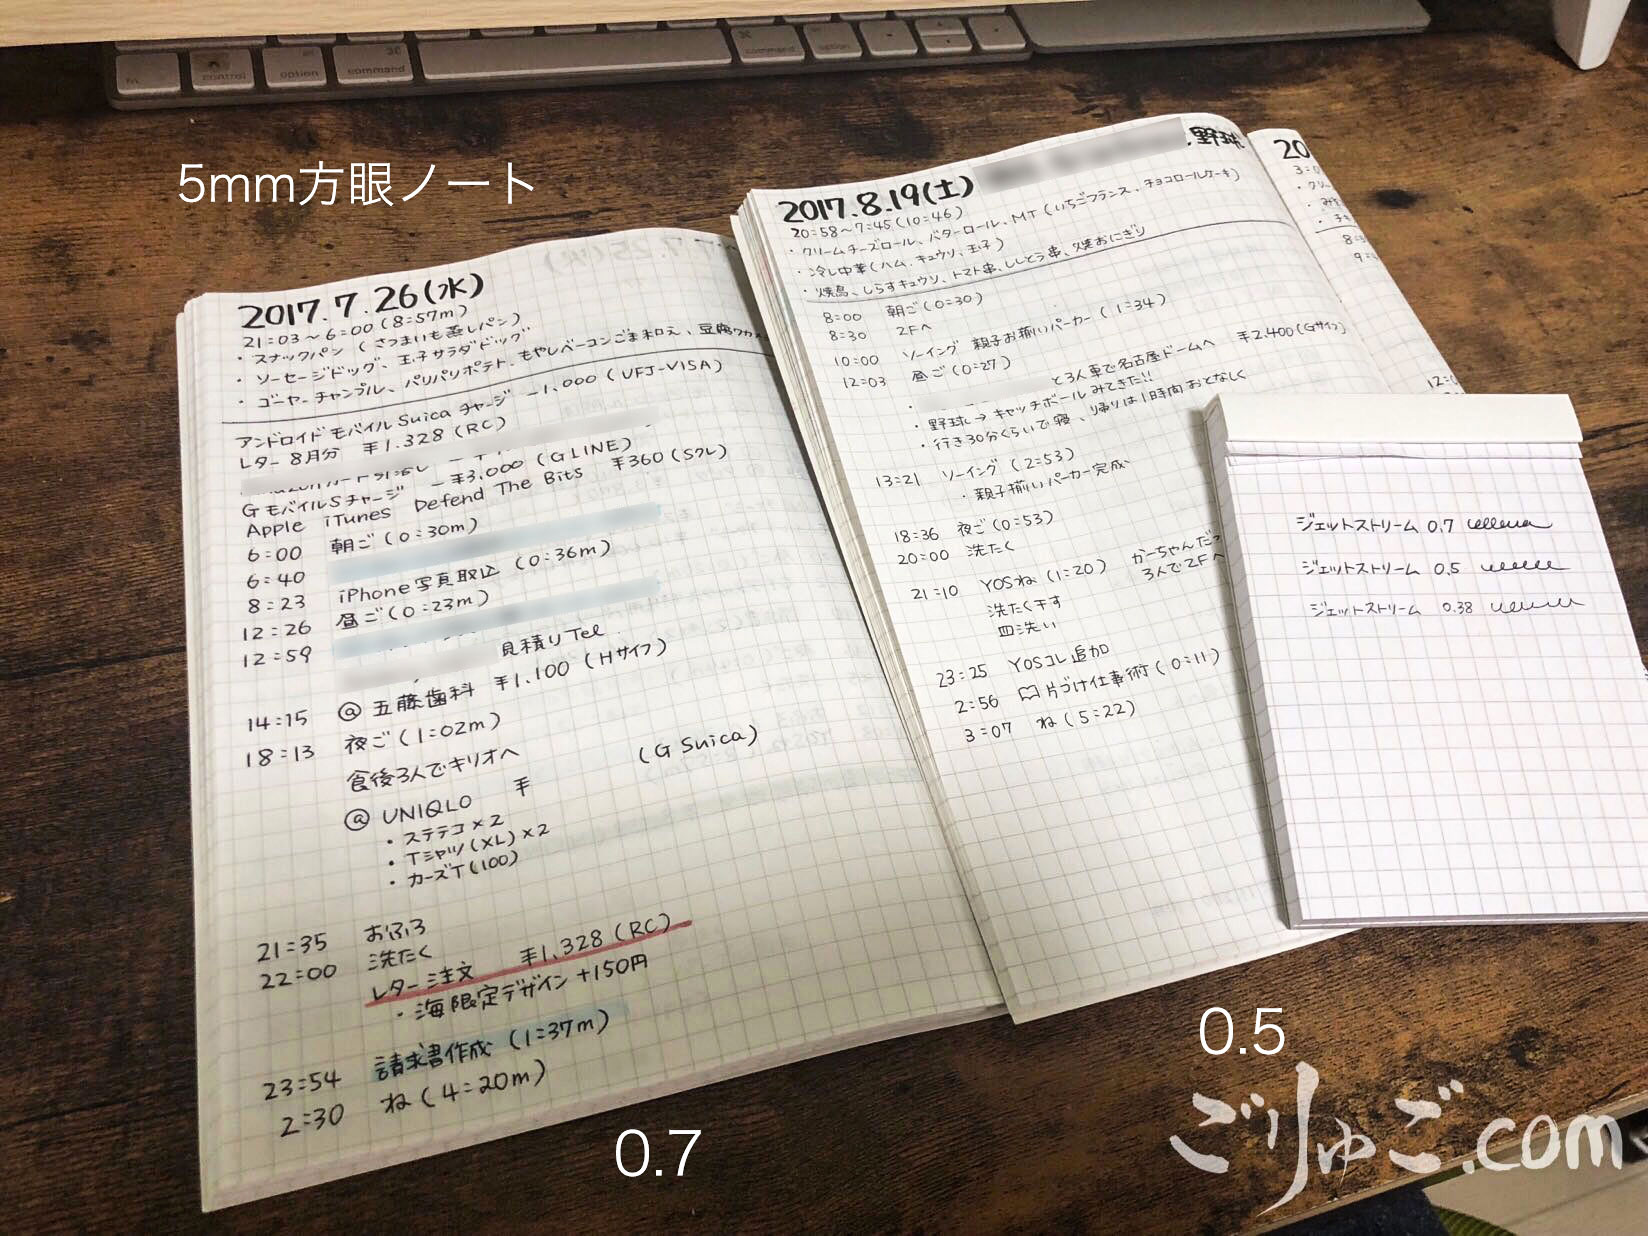 fn
control
option
command
command
option
5mm方眼ノート
2017.7.26(水)
21:03〜6:00(8:57m)
・スナックパン(さつまいも蒸しパン)
・ソーセージドッグ、玉子サラダドッグ
・ゴーヤーチャンプル、パリパリポテト、もやしベーコンごま和え、豆腐ワカメ
アンドロイドモバイルSuicaチャージ -1,000(UFJ-VISA)
レター8月分 ¥1.328(RC)
GモバイルSチャージ -¥3,000(G LINE)
Apple iTunes Defend The Bits ¥360(Sクレ)
6:00 朝ご(0:30m)
6:40
8:23 iPhone写真取込(0:36m)
12:26 昼ご(0:23m)
12:59
見積りTel
14:15 @五藤歯科 ¥1.100(Hサイフ)
18:13 夜ご(1:02m)
食後3人でキリオへ
@UNIQLO ¥ (G Suica)
・ステテコ×2
・Tシャツ(XL)×2
・カーズT(100)
21:35 おふろ
22:00 洗たく
レター注文 ¥1.328(RC)
・海限定デザイン+150円
23:54 請求書作成(1:37m)
2:30 ね(4:20m)
0.7
2017.8.19(土) 、野球
20:58〜7:45(10:46)
・クリームチーズロール、バターロール、MT(いちごフランス、チョコロールケーキ)
・冷し中華(ハム、キュウリ、玉子)
・焼鳥、しらすキュウリ、トマト串、ししとう串、焼おにぎり
8:00 朝ご(0:30)
8:30 2Fへ
10:00 ソーイング 親子お揃いパーカー(1:34)
12:03 昼ご(0:27)
・ と3人車で名古屋ドームへ ¥2.400(Gサイフ)
・野球→キャッチボールみてきた!!
・行き30分くらいで寝、帰りは1時間おとなしく
13:21 ソーイング(2:53)
・親子揃いパーカー完成、
18:36 夜ご(0:53)
20:00 洗たく
21:10 YOSね(1:20) かーちゃんだっ
洗たく干す 3人で2Fへ
皿洗い
23:25 YOSコレ追加
2:56 片づけ仕事術(0:11)
3:07 ね(5:22)
20
12:0
ジェットストリーム 0.7
ジェットストリーム 0.5
ジェットストリーム 0.38
0.5
ごりゅご.com